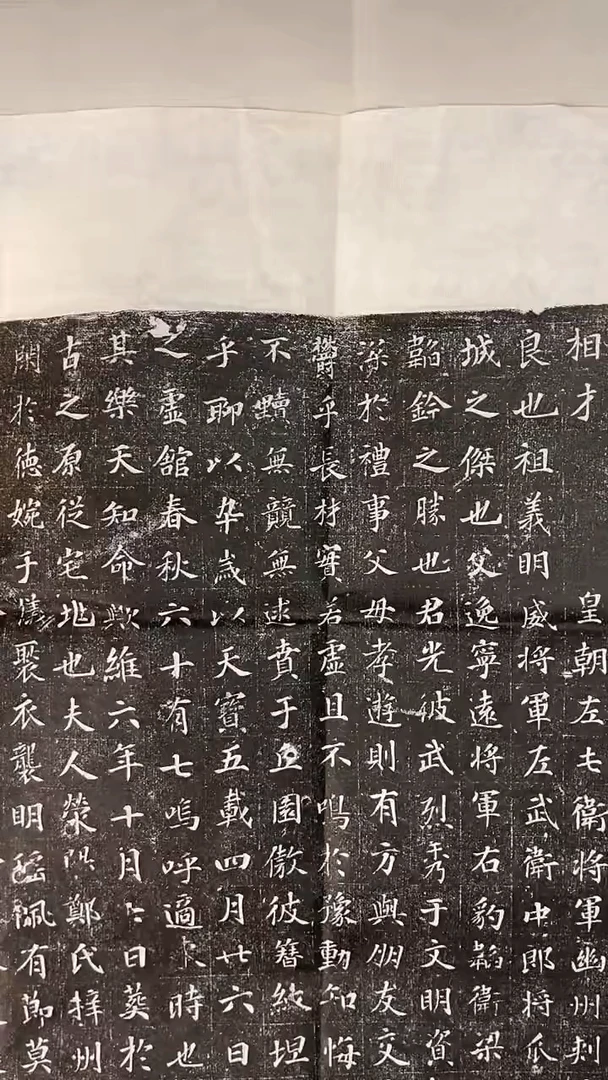 相才皇朝左屯衛將軍幽州刺
良也祖義明威將軍左武衛中郎將瓜
城之傑也父逸寧遠將軍右豹韜衛梁
韜鈐之勝也君光彼武烈秀于文明資
深於禮事父母孝遊則有方與朋友交
欝乎長材寶若虛且不鳴於豫動知悔
不黷無競無逑賁于丘園傲彼簪紱坦
乎聊以卒歲以天寶五載四月廿六日
之虛舘春秋六十有七嗚呼適來時也
其樂天知命歟維六年十月 日葬於
古之原從宅兆也夫人滎陽鄭氏梓州
閑於德婉于儀褧衣襲明瑤珮有節莫